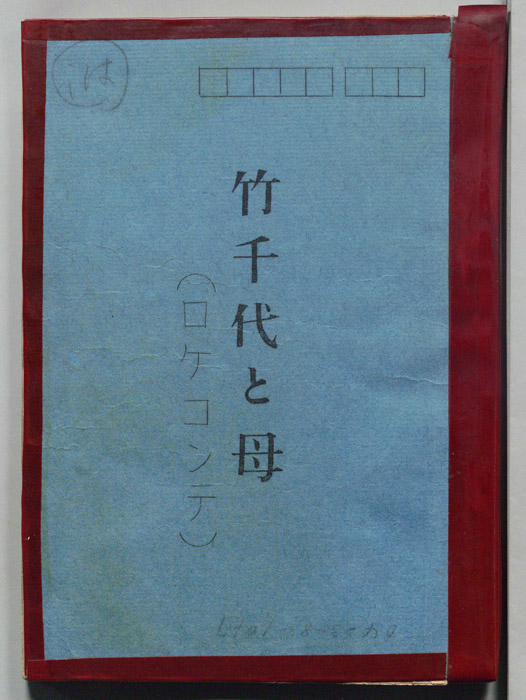 竹千代と母
(ロケコンテ)